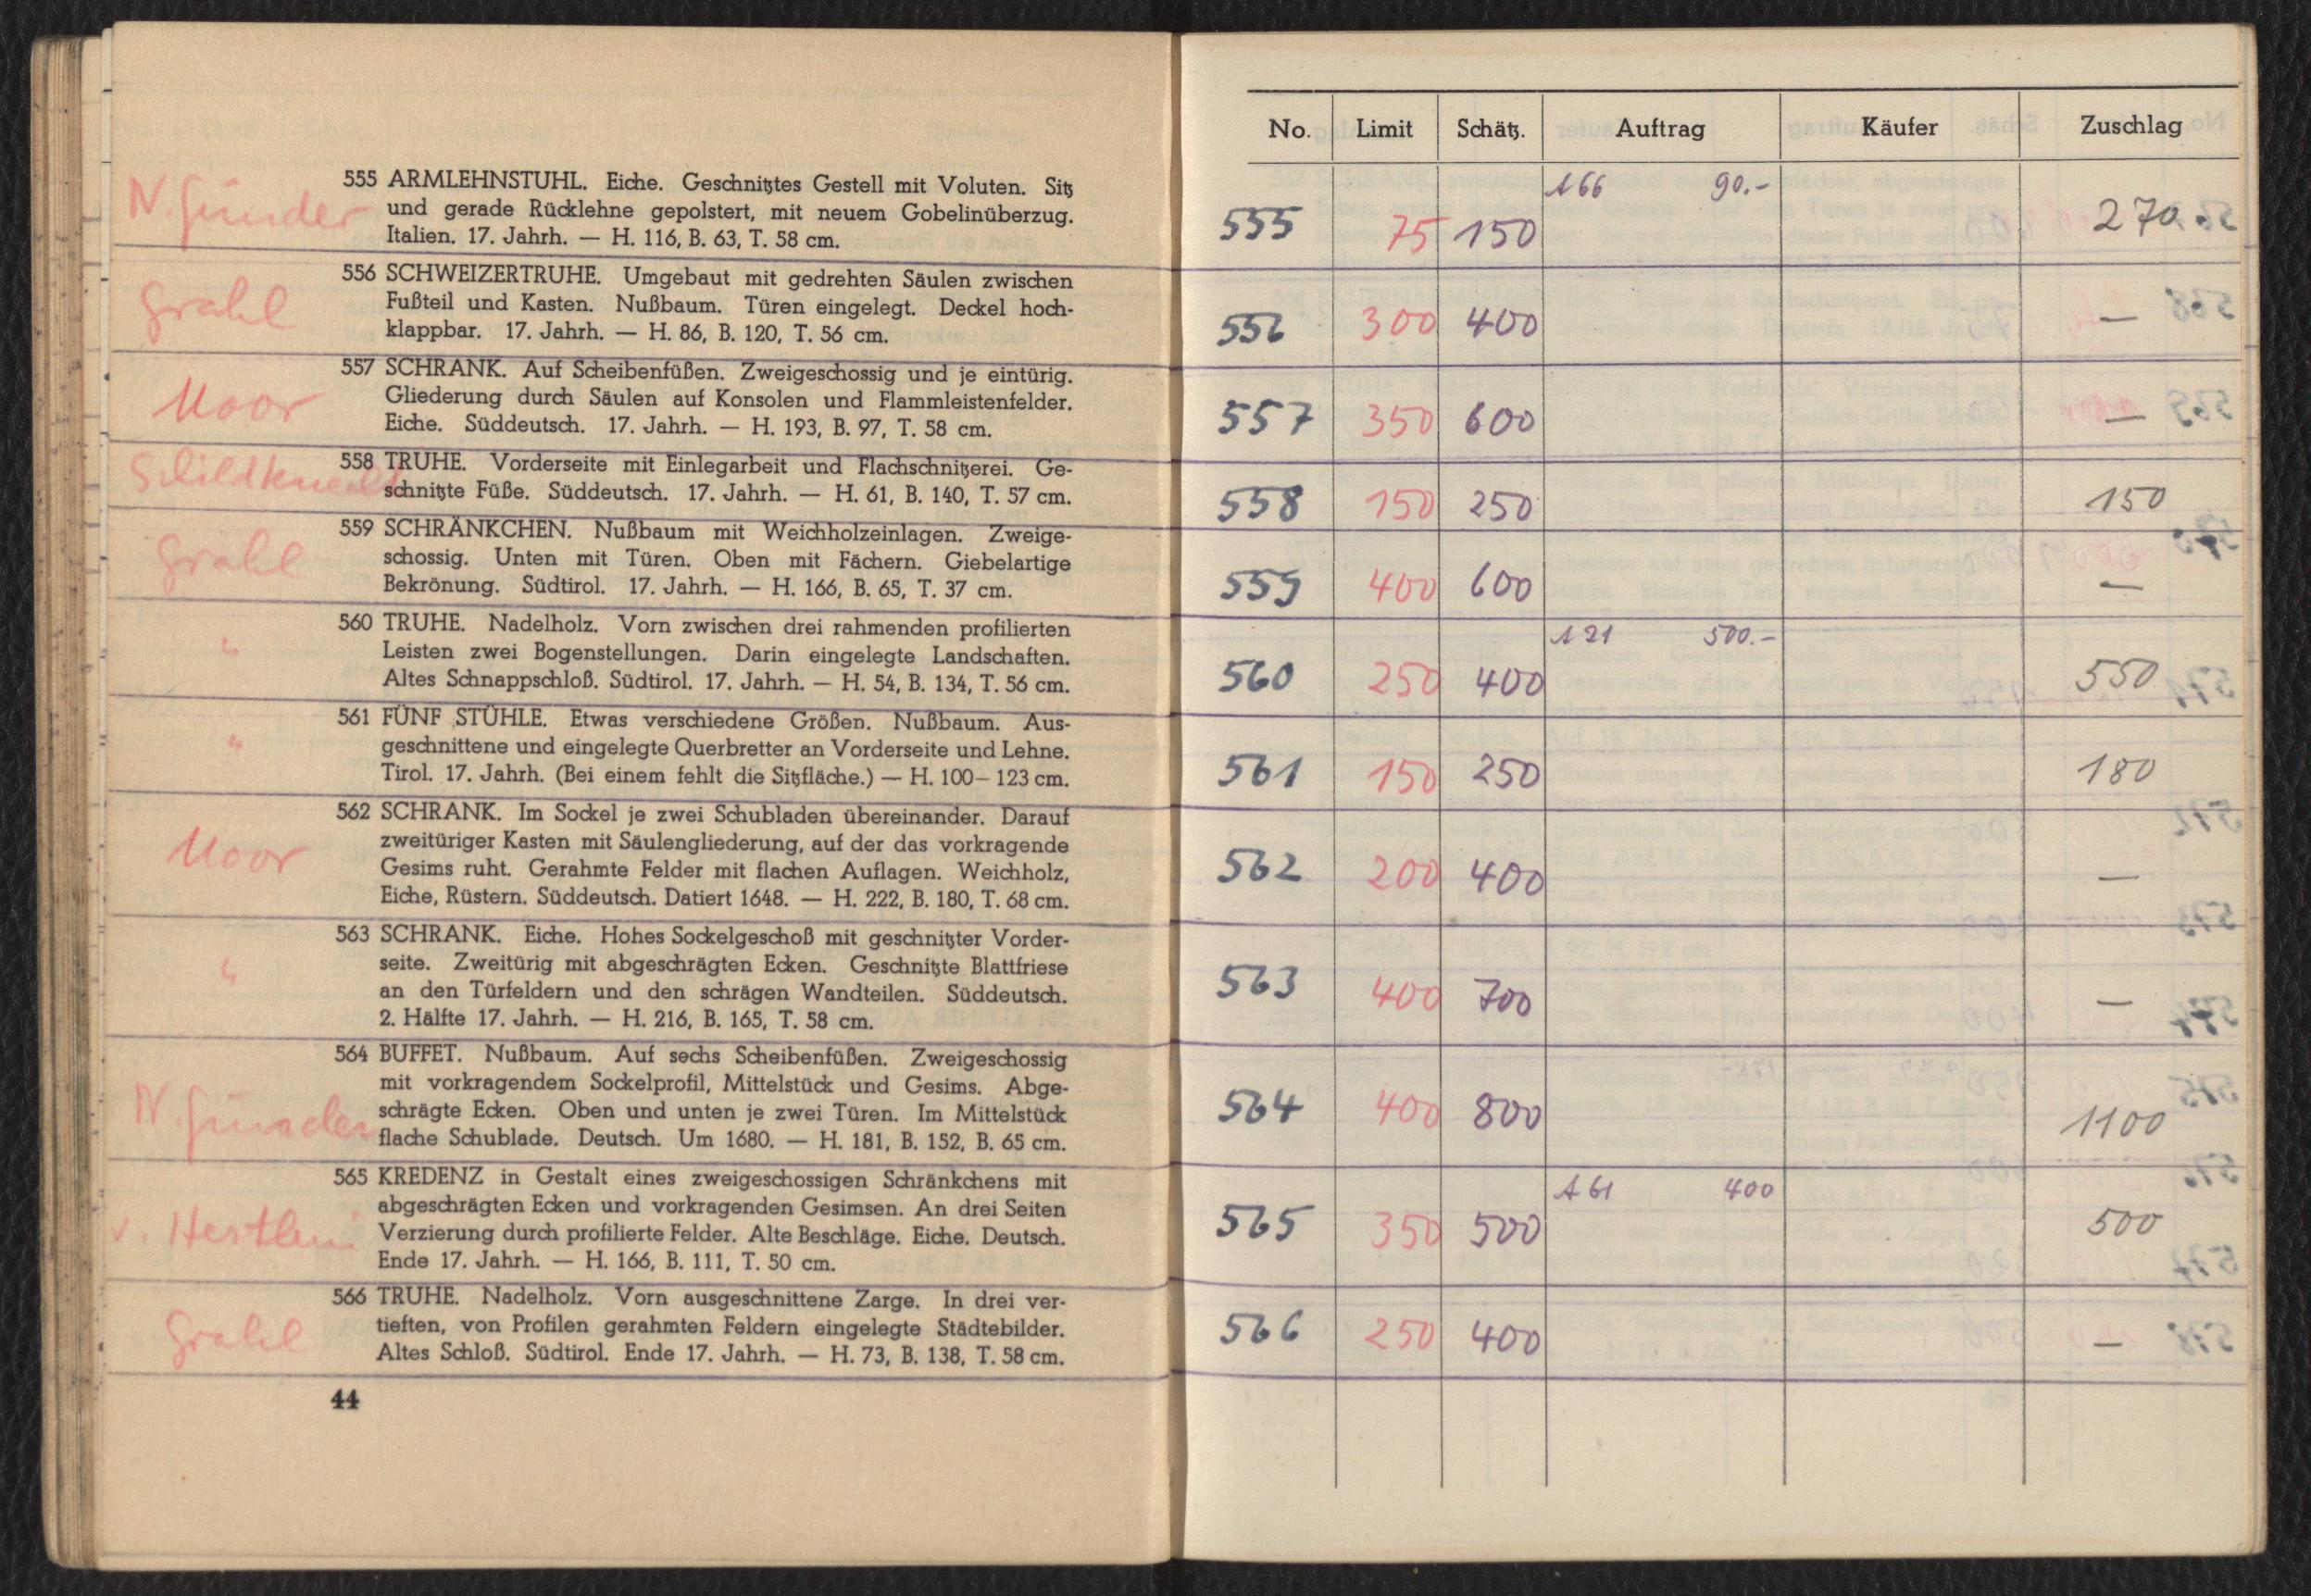 N. Günder
555 ARMLEHNSTUHL. Eiche. Geschnitztes Gestell mit Voluten. Sitz
und gerade Rücklehne gepolstert, mit neuem Gobelinüberzug.
Italien. 17. Jahrh. — H. 116, B. 63, T. 58 cm.
Grahl
556 SCHWEIZERTRUHE. Umgebaut mit gedrehten Säulen zwischen
Fußteil und Kasten. Nußbaum. Türen eingelegt. Deckel hoch-
klappbar. 17. Jahrh. — H. 86, B. 120, T. 56 cm.
Moor
557 SCHRANK. Auf Scheibenfüßen. Zweigeschossig und je eintürig.
Gliederung durch Säulen auf Konsolen und Flammleistenfelder.
Eiche. Süddeutsch. 17. Jahrh. — H. 193, B. 97, T. 58 cm.
Schildknecht
558 TRUHE. Vorderseite mit Einlegarbeit und Flachschnitzerei. Ge-
schnitzte Füße. Süddeutsch. 17. Jahrh. — H. 61, B. 140, T. 57 cm.
Grahl
559 SCHRÄNKCHEN. Nußbaum mit Weichholzeinlagen. Zweige-
schossig. Unten mit Türen. Oben mit Fächern. Giebelartige
Bekrönung. Südtirol. 17. Jahrh. — H. 166, B. 65, T. 37 cm.
"
560 TRUHE. Nadelholz. Vorn zwischen drei rahmenden profilierten
Leisten zwei Bogenstellungen. Darin eingelegte Landschaften.
Altes Schnappschloß. Südtirol. 17. Jahrh. — H. 54, B. 134, T. 56 cm.
"
561 FÜNF STÜHLE. Etwas verschiedene Größen. Nußbaum. Aus-
geschnittene und eingelegte Querbretter an Vorderseite und Lehne.
Tirol. 17. Jahrh. (Bei einem fehlt die Sitzfläche.) — H. 100–123 cm.
Moor
562 SCHRANK. Im Sockel je zwei Schubladen übereinander. Darauf
zweitüriger Kasten mit Säulengliederung, auf der das vorkragende
Gesims ruht. Gerahmte Felder mit flachen Auflagen. Weichholz,
Eiche, Rüstern. Süddeutsch. Datiert 1648. — H. 222, B. 180, T. 68 cm.
"
563 SCHRANK. Eiche. Hohes Sockelgeschoß mit geschnitzter Vorder-
seite. Zweitürig mit abgeschrägten Ecken. Geschnitzte Blattfriese
an den Türfeldern und den schrägen Wandteilen. Süddeutsch.
2. Hälfte 17. Jahrh. — H. 216, B. 165, T. 58 cm.
N. Günder
564 BUFFET. Nußbaum. Auf sechs Scheibenfüßen. Zweigeschossig
mit vorkragendem Sockelprofil, Mittelstück und Gesims. Abge-
schrägte Ecken. Oben und unten je zwei Türen. Im Mittelstück
flache Schublade. Deutsch. Um 1680. — H. 181, B. 152, B. 65 cm.
565 KREDENZ in Gestalt eines zweigeschossigen Schränkchens mit
abgeschrägten Ecken und vorkragenden Gesimsen. An drei Seiten
Verzierung durch profilierte Felder. Alte Beschläge. Eiche. Deutsch.
Ende 17. Jahrh. — H. 166, B. 111, T. 50 cm.
Grahl
566 TRUHE. Nadelholz. Vorn ausgeschnittene Zarge. In drei ver-
tieften, von Profilen gerahmten Feldern eingelegte Städtebilder.
Altes Schloß. Südtirol. Ende 17. Jahrh. — H. 73, B. 138, T. 58 cm.
44
No. Limit Schätz. Auftrag Käufer Zuschlag
A 66 90.-
555 75 150 270
556 300 400 —
557 350 600 —
558 150 250 150
559 400 600 —
A 21 500.-
560 250 400 550
561 150 250 180
562 200 400 —
563 400 700 —
564 400 800 1100
A 61 400
565 350 500 500
566 250 400 —